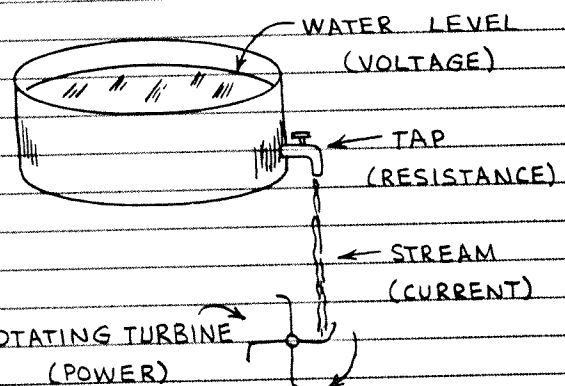 WATER LEVEL
(VOLTAGE)
TAP
(RESISTANCE)
STREAM
(CURRENT)
OTATING TURBINE
(POWER)